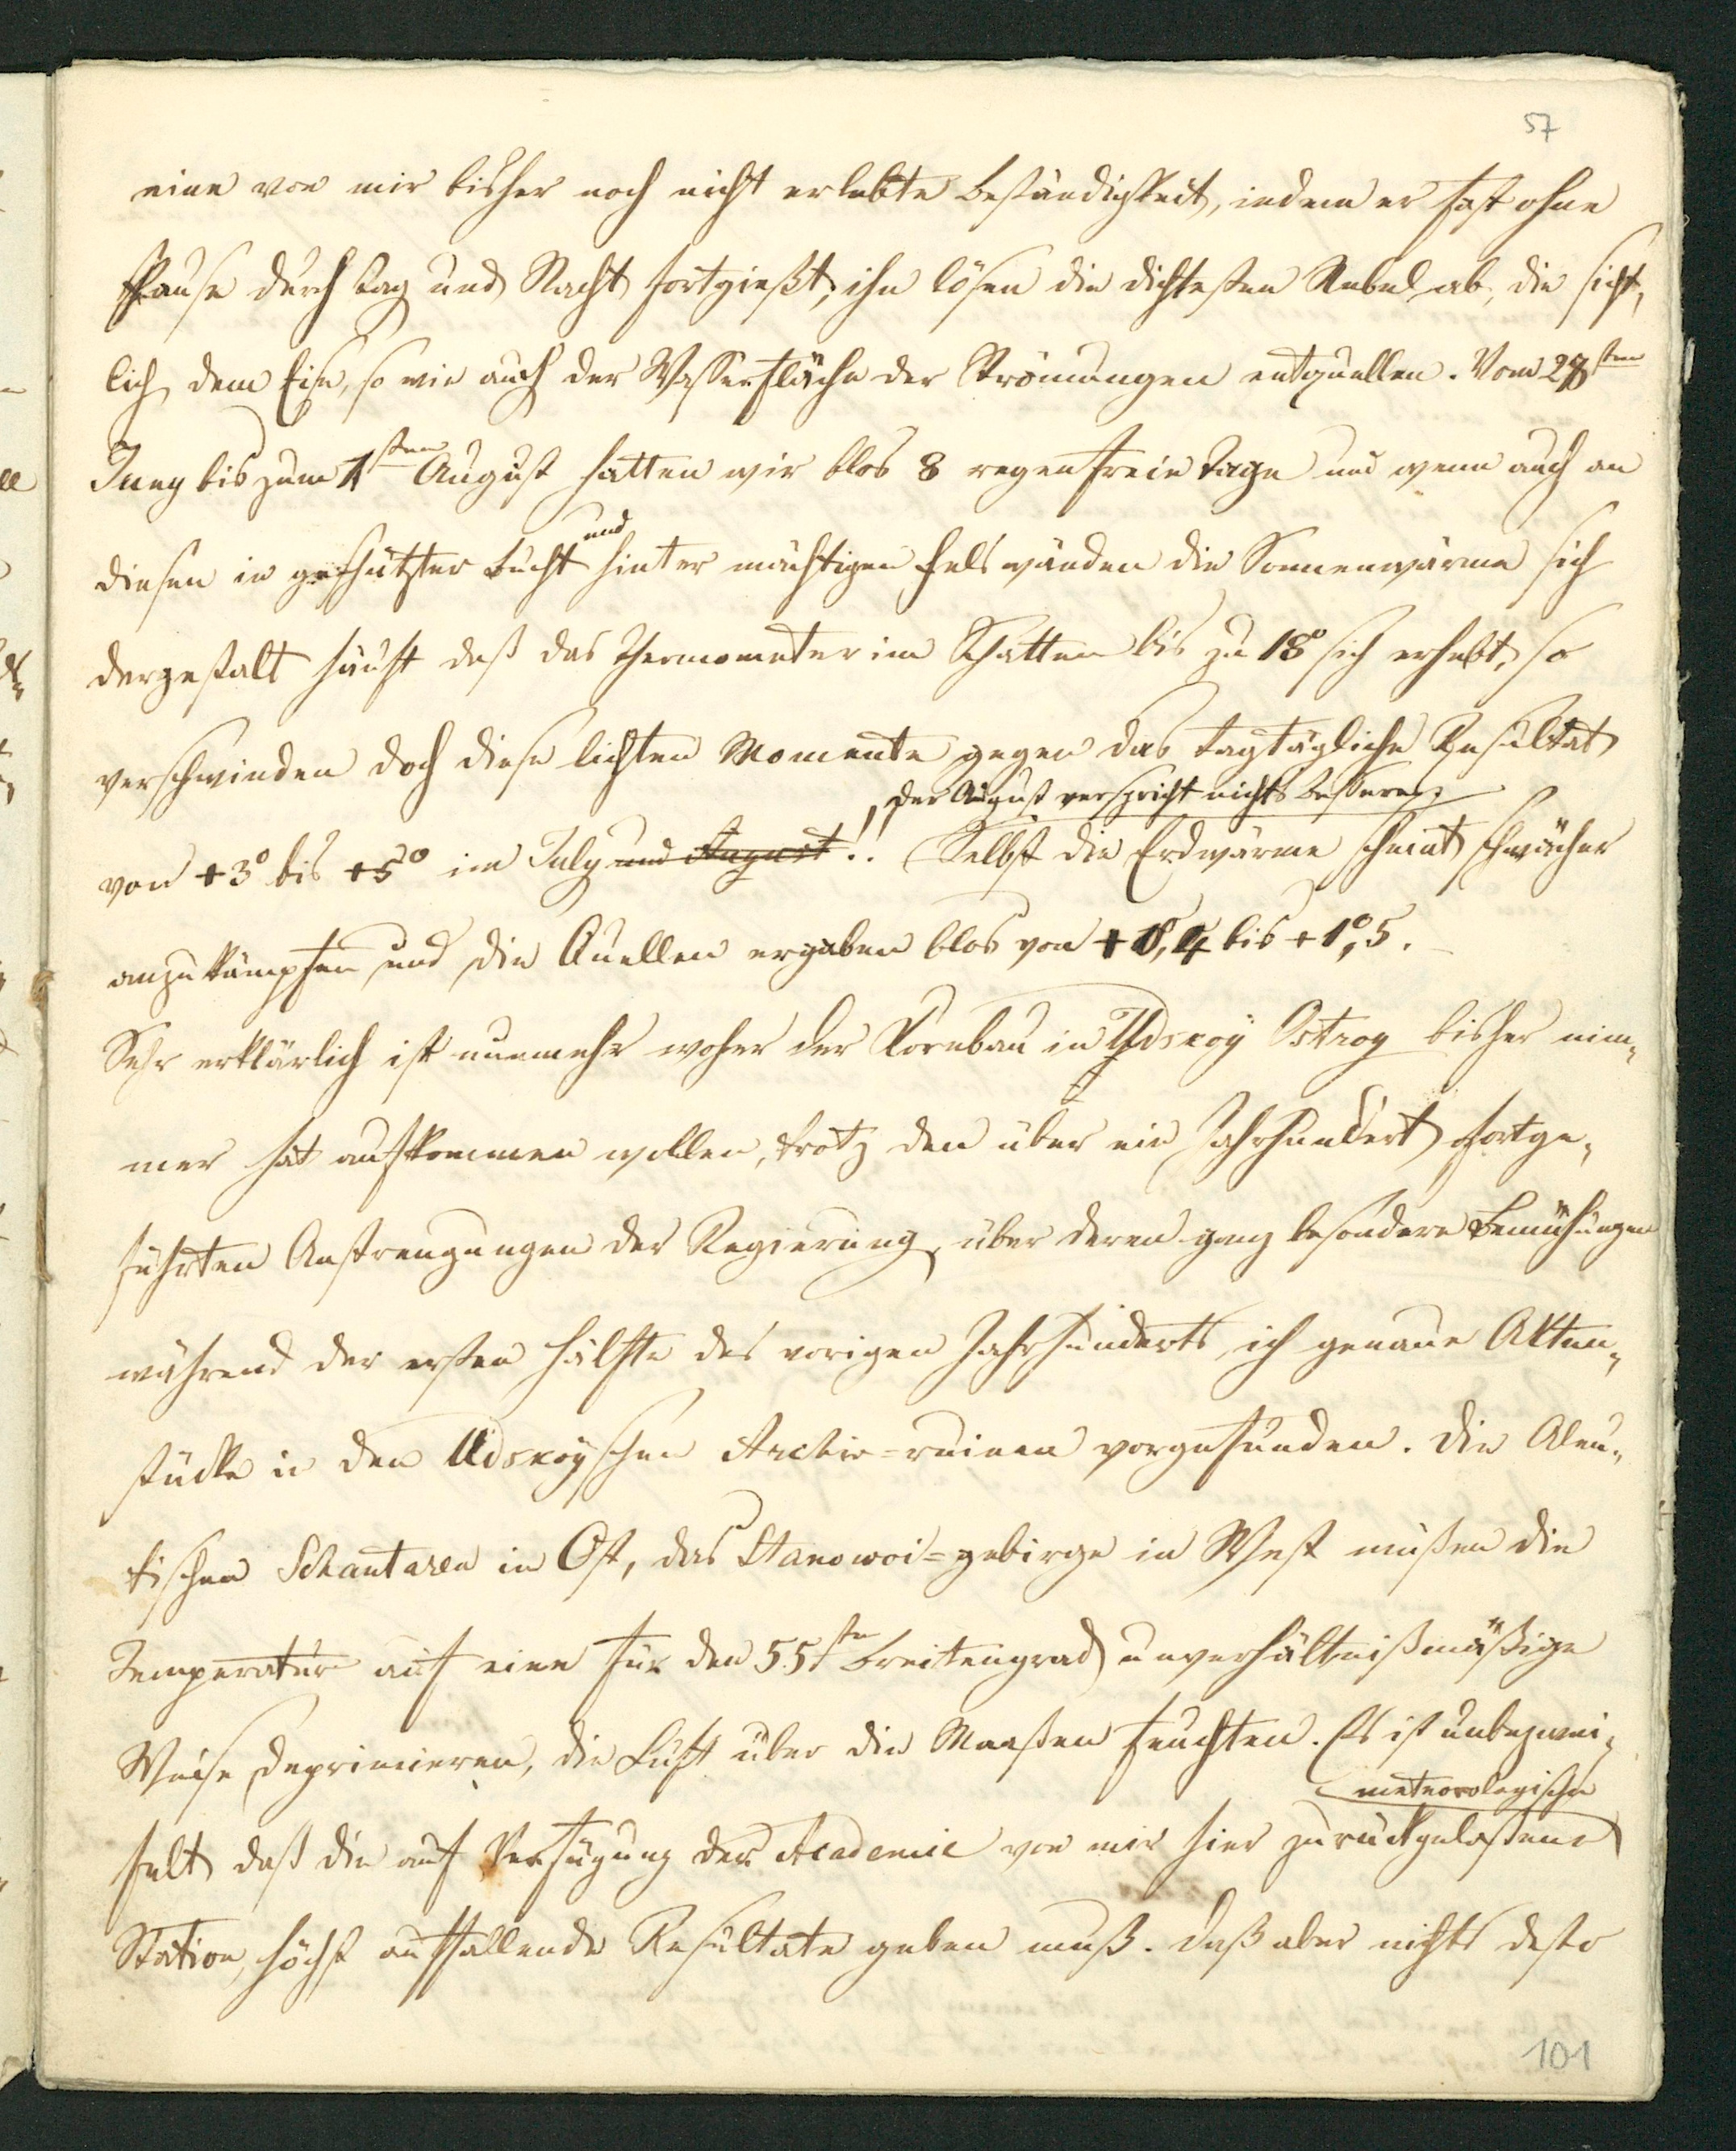 57
eine von mir bisher noch nicht erlebte Beständigkeit, indem er fast ohne
Pause durch Tag und Nacht fortgießt; ihn lösen die dichtesten Nebel ab, die sicht-
lich dem Eise, so wie auch der Wasserfläche der Strömungen entquellen. Vom 28sten
Juny bis zum 1sten August hatten wir blos 8 regenfreie Tage und wenn auch an
diesen in geschützter Bucht und hinter mächtigen Felswänden die Sonnenwärme sich
dergestalt häuft daß das Thermometer im Schatten bis zu 18° sich erhebt, so
verschwinden doch diese lichten Momente gegen das tagtägliche Resultat
, der August verspricht nichts Besseres.
von +3° bis +5° im July und August!! Selbst die Erdwärme scheint schwächer
anzukämpfen und die Quellen ergaben blos von +0°,4 bis +1°,5.
Sehr erklärlich ist nunmehr woher der Kornbau in Udskoy Ostrog bisher nim-
mer hat aufkommen wollen, trotz den über ein Jahrhundert fortge-
führten Anstrengungen der Regierung, über deren ganz besondere Bemühungen
während der ersten Hälfte des vorigen Jahrhunderts, ich genaue Akten-
stücke in den Udskoyschen Archiv-ruinen vorgefunden. Die Aleu-
tischen Schantaren in Ost, das Stanowoi-gebirge in West müßen die
Temperatur auf eine für den 55ste Breitengrad unverhältnißmäßige
Weise deprimieren, die Luft über die Maaßen feuchten. Es ist unbezwei-
meteorologische
felt daß die auf Verfügung der Academie von mir hier zurückgelaßene
Station, höchst auffallende Resultate geben muß. Daß aber nichts desto
101